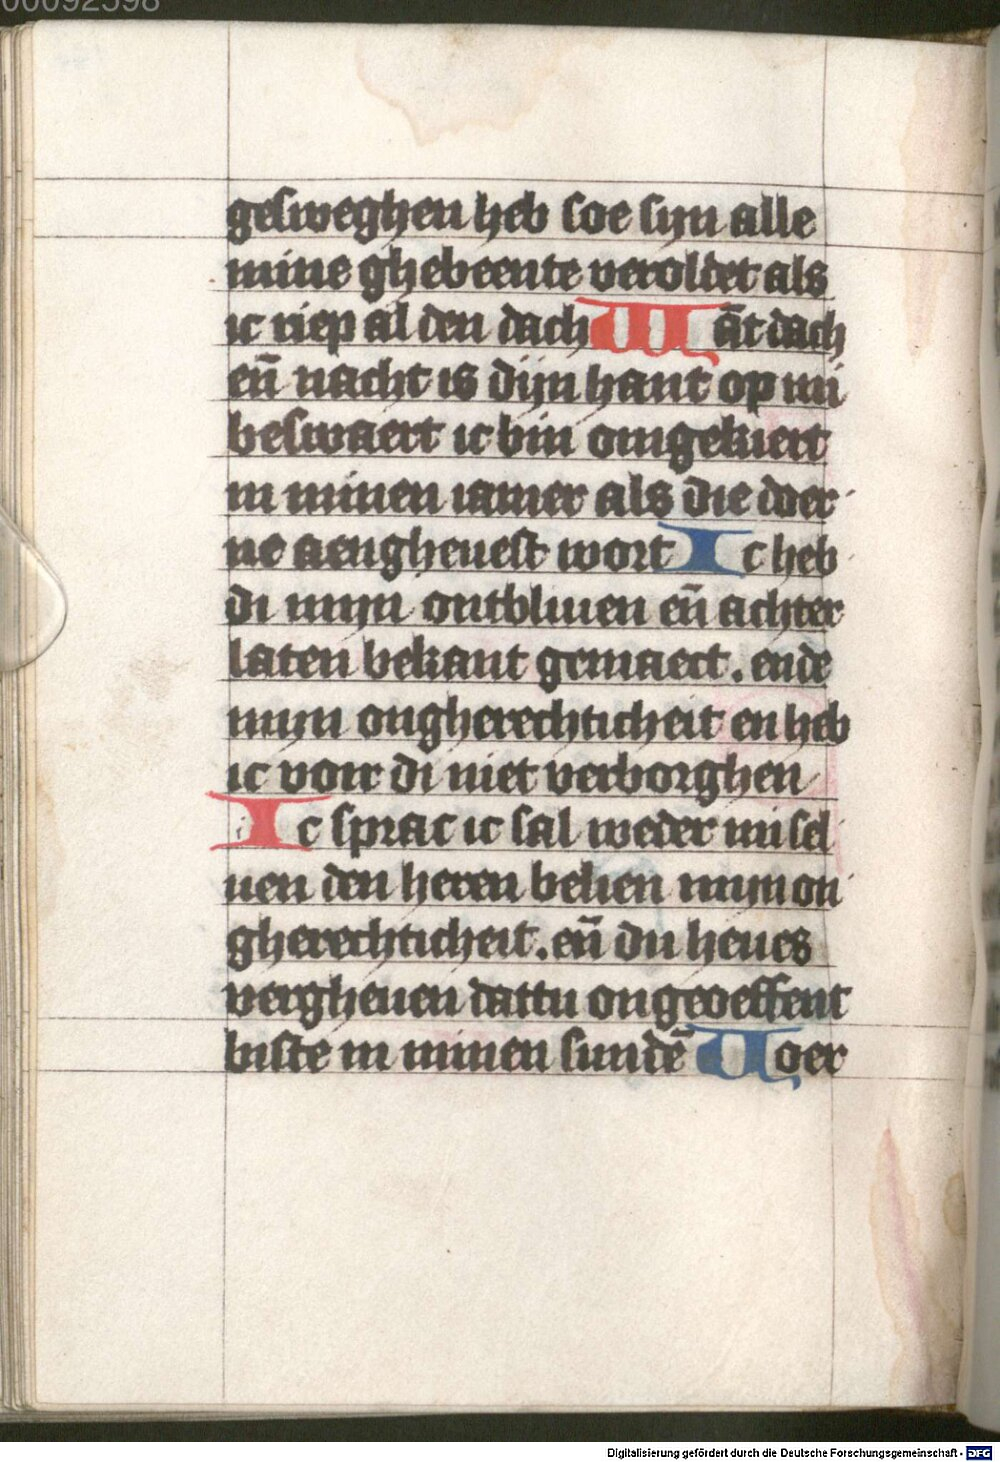 00092598
gesweghen heb soe sijn alle
mine ghebeente veroldet als
ic riep al den dach Wāt dach
en̄ nacht is dijn hant op mi
beswaert ic bin omgekiert
in minen iamer als die doer
ne aengheuest wort Ic heb
di mijn ontbliuen en̄ achter
laten bekant gemaect. ende
mijn ongherechticheit en heb
ic voir di niet verborghen
Ic sprac ic sal weder mi sel
uen den heren belien mijn on
gherechticheit. en̄ du heues
vergheuen dattu ongeoeffent
biste in minen sundē Voer
Digitalisierung gefördert durch die Deutsche Forschungsgemeinschaft - DFG